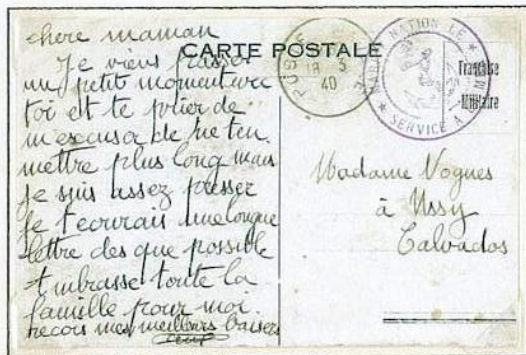 chere maman
CARTE POSTALE
Je viens passer
un petit moment
toi et te prier de
m'excuser de ne t'en
mettre plus long mais
je suis assez presser
je t'ecrirais une longue
lettre des que possible
t'embrasse toute la
famille pour moi.
recois mes meilleurs baisers
POSTE
18 3
40
NATION LE
★ SERVICE A
Franchise
Militaire
Madame Vogues
à Ussy
Calvados